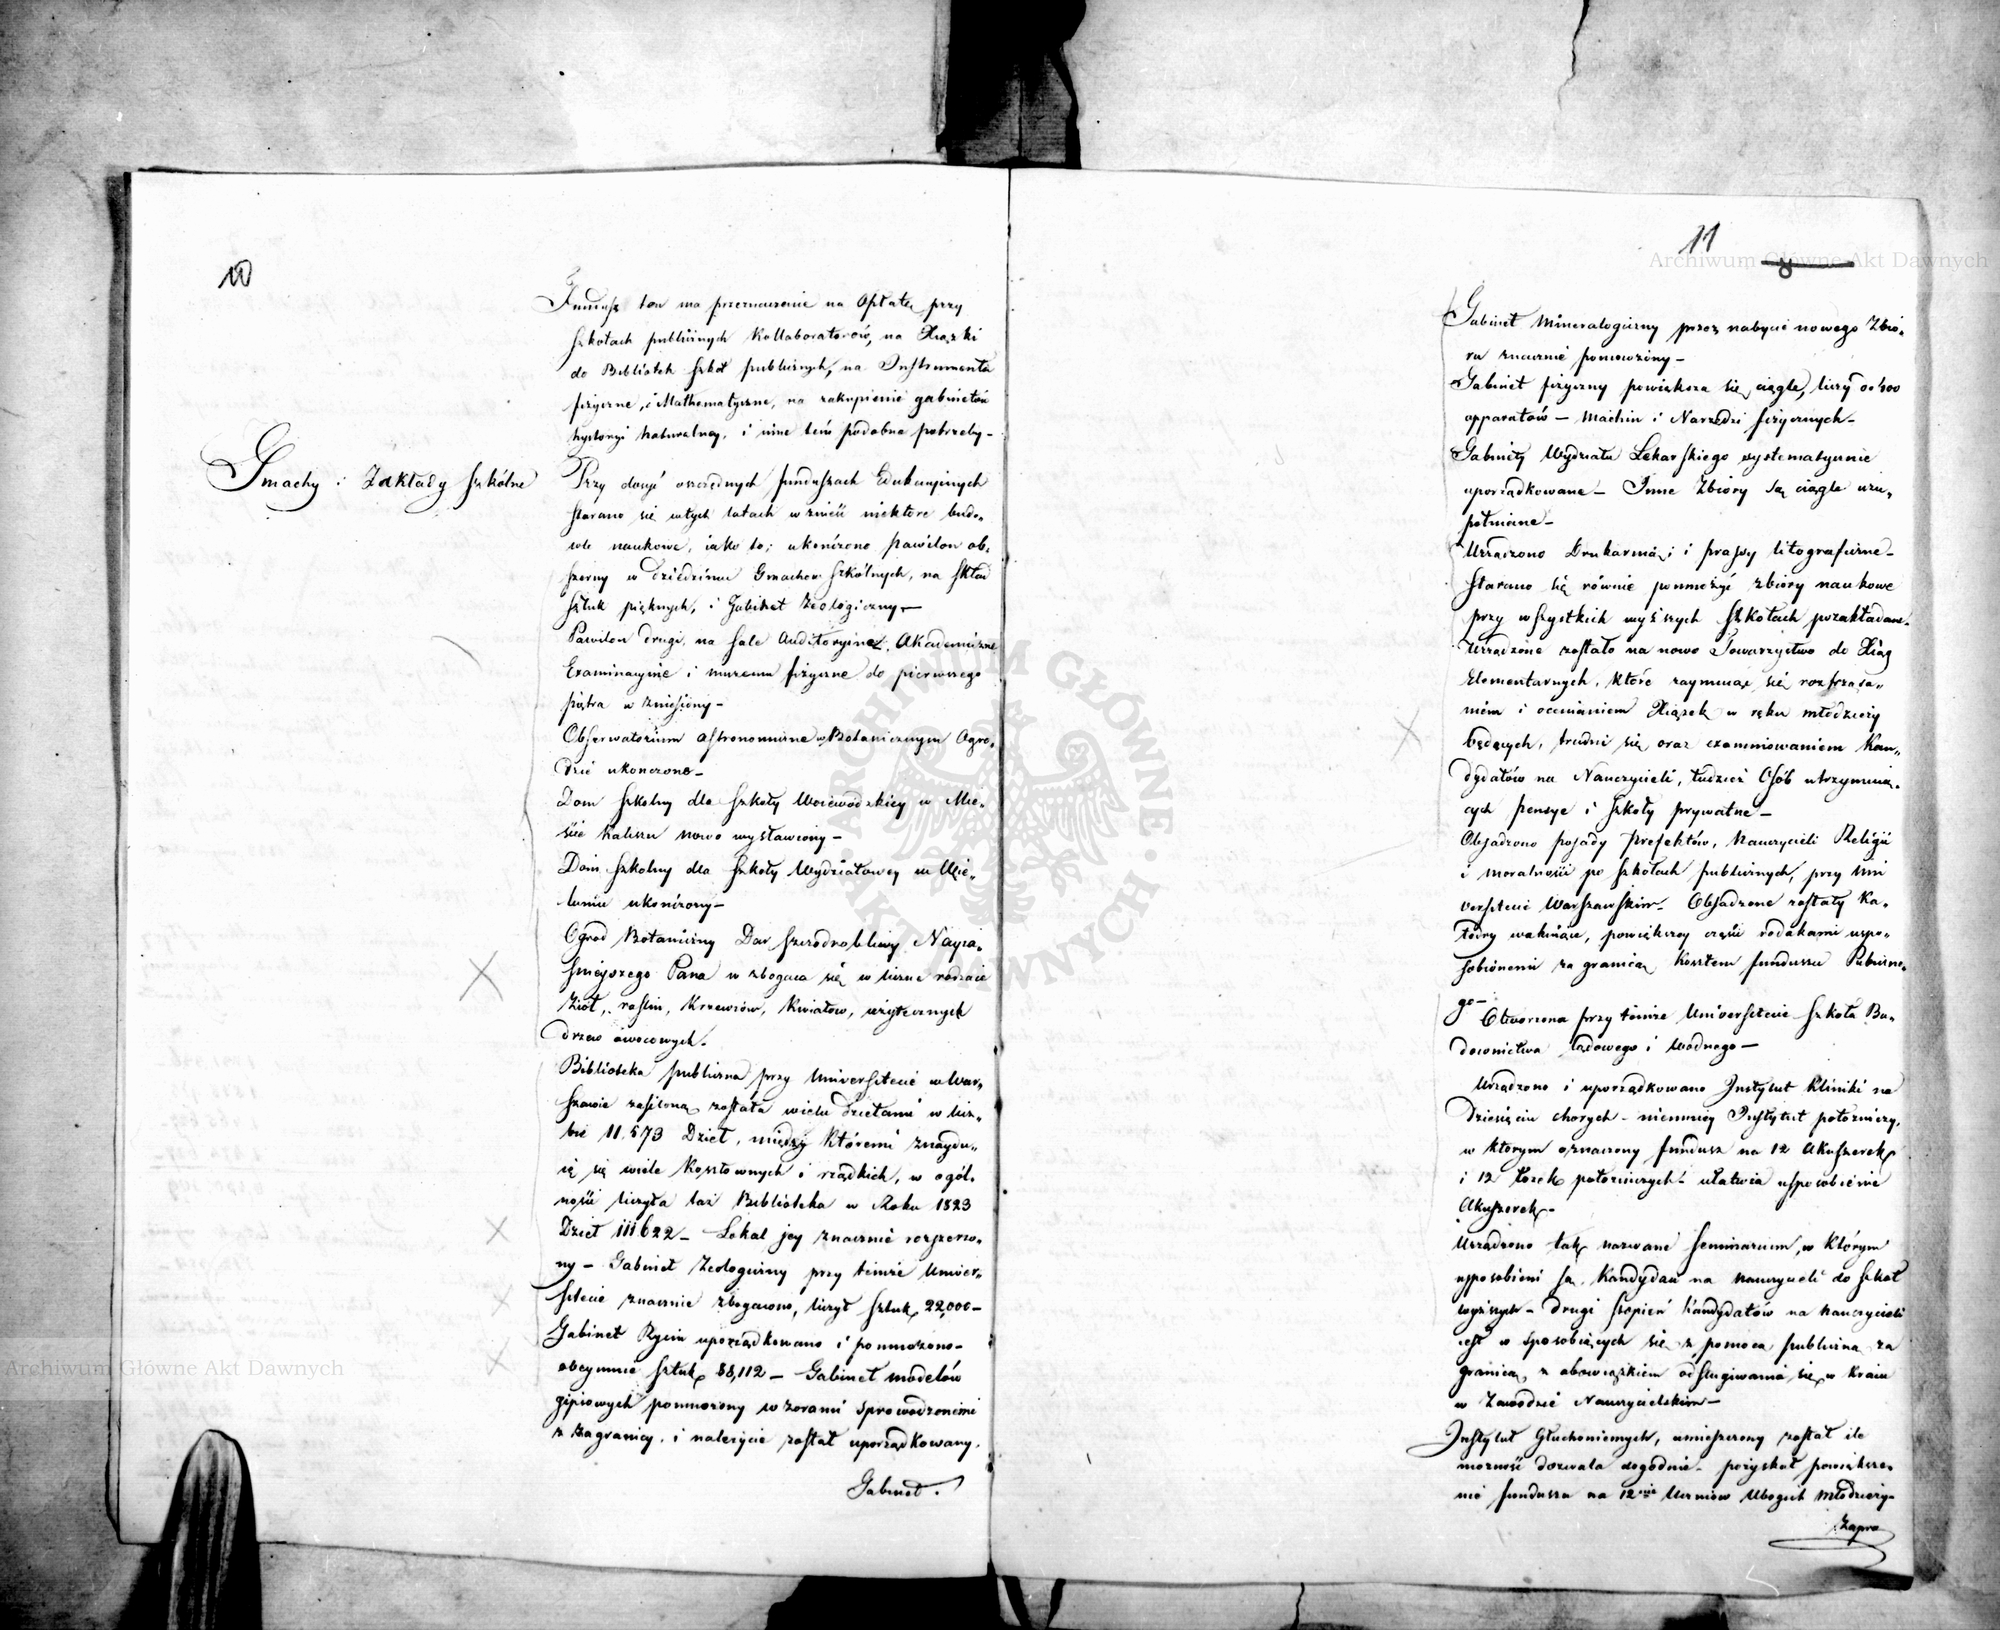 10
Fundusz ten ma przeznaczenie na Opłatę przy
szkołach publicznych Kollaboratorów, na Xiążki
do Bibliotek szkół publicznych, na Instrumenta
fizyczne, i Mathematyczne, na zakupienie gabinetów
hystoryi naturalney, i inne tem podobne potrzeby-
Gmachy i Zakłady szkólne
Przy dosyć oszczędnych funduszach Edukacyinych
starano się w tych latach wznieść niektóre budo-
wle naukowe, iako to; ukończono pawilon ob-
szerny w dziedzińcu Gmachów szkólnych, na skład
sztuk pięknych, i Gabinet Zoologiczny-
Pawilon drugi, na sale Auditoryine, Akademiczne
Examinacyine i muzeum fizyczne do pierwszego
piętra wzniesiony-
Obserwatorium astronomiczne w Botanicznym Ogro-
dzie ukończone-
Dom szkolny dla szkoły Woiewódzkiey w Mie-
ście Kaliszu nowo wystawiony-
Dom szkolny dla szkoły Wydziałowey w Wie-
luniu ukończony-
Ogrod Botaniczny Dar szczodrobliwy Nayia-
śnieyszego Pana wzbogaca się w liczne rodzaie
ziół, roslin, krzewów, kwiatów, użytecznych
drzew owocowych.
Biblioteka publiczna przy Universitecie w War-
szawie zasilona została wielu dziełami w licz-
bie 11.573 Dzieł, między któremi znaydu-
ią się wiele kosztownych i rządkich, w ogól-
ności liczyła taż Biblioteka w Roku 1823
Dzieł 111622- Lokal jey znacznie rozszerzo-
ny- Gabinet Zoologiczny przy temże Univer-
sitecie znacznie zbogacono, liczył sztuk 22,000-
Gabinet Rycin uporządkowano i pomnożono-
obeymuie sztuk 88,112- Gabinet modelów
gipsowych pomnożony wzorami sprowadzonemi
z zagranicy, i należycie został uporządkowany.
Gabinet.
11
8
Gabinet Mineralogiczny przez nabycie nowego Zbio-
ru znacznie pomnożony-
Gabinet fizyczny powiększa się ciągle, liczy do 400
apparatów- machin i Narzędzi fizycznych-
Gabinety Wydziału Lekarskiego systematycznie
uporządkowane- Inne Zbiory są ciągle uzu-
pełniane-
Urządzono Drukarnią i prassy litograficzne-
starano się równie pomnożyć zbiory naukowe
przy wszystkich wyższych szkołach pozakładane-
Urządzone zostało na nowo Towarzystwo do Xiąg
Elementarnych, które zaymuiąc się roztrząsa-
niem i ocenianiem Xiążek w ręku młodzieży
będących, trudni się oraz examinowaniem Kan-
dydatów na Nauczycieli, tudzież Osób utrzymuią-
cych pensye i szkoły prywatne-
Obsadzono posady Prefektów, Nauczycieli Religii
i moralności po szkołach publicznych, przy Uni
versitecie Warszawskim- Obsadzone zostały Ka-
tedry wakuiące, powiększey części rodakami uspo-
sobionemi za granicą kosztem funduszu Publiczne-
go-
Otworzona przy temże Universitecie szkoła Bu-
downictwa lądowego i wodnego-
Urządzono i uporządkowano Instytut kliniki na
dziesięciu chorych- niemniey Instytut połozniczy,
w którym oznaczony fundusz na 12 Akuszerek
i 12 łożek położniczych- ułatwia usposobienie
Akuszerek-
Urządzono tak nazwane seminarium, w którym
usposobieni są Kandydaci na nauczycieli do szkół
wyższych- drugi stopień kandydatów na nauczycieli
iest w sposobiących się z pomocą publiczną za
granicą, z obowiązkiem odsługiwania się w Kraiu
w Zawodzie Nauczycielskim-
Instytut Głuchoniemych, umieszczony został ile
możność dozwala dogodnie- pozyskał powiększe-
nie funduszu na 12cie Uczniów Ubogich młodzieży-
Zapro
Archiwum Główne Akt Dawnych
Archiwum Główne Akt Dawnych
ARCHIWUM GŁÓWNE · AKT DAWNYCH ·